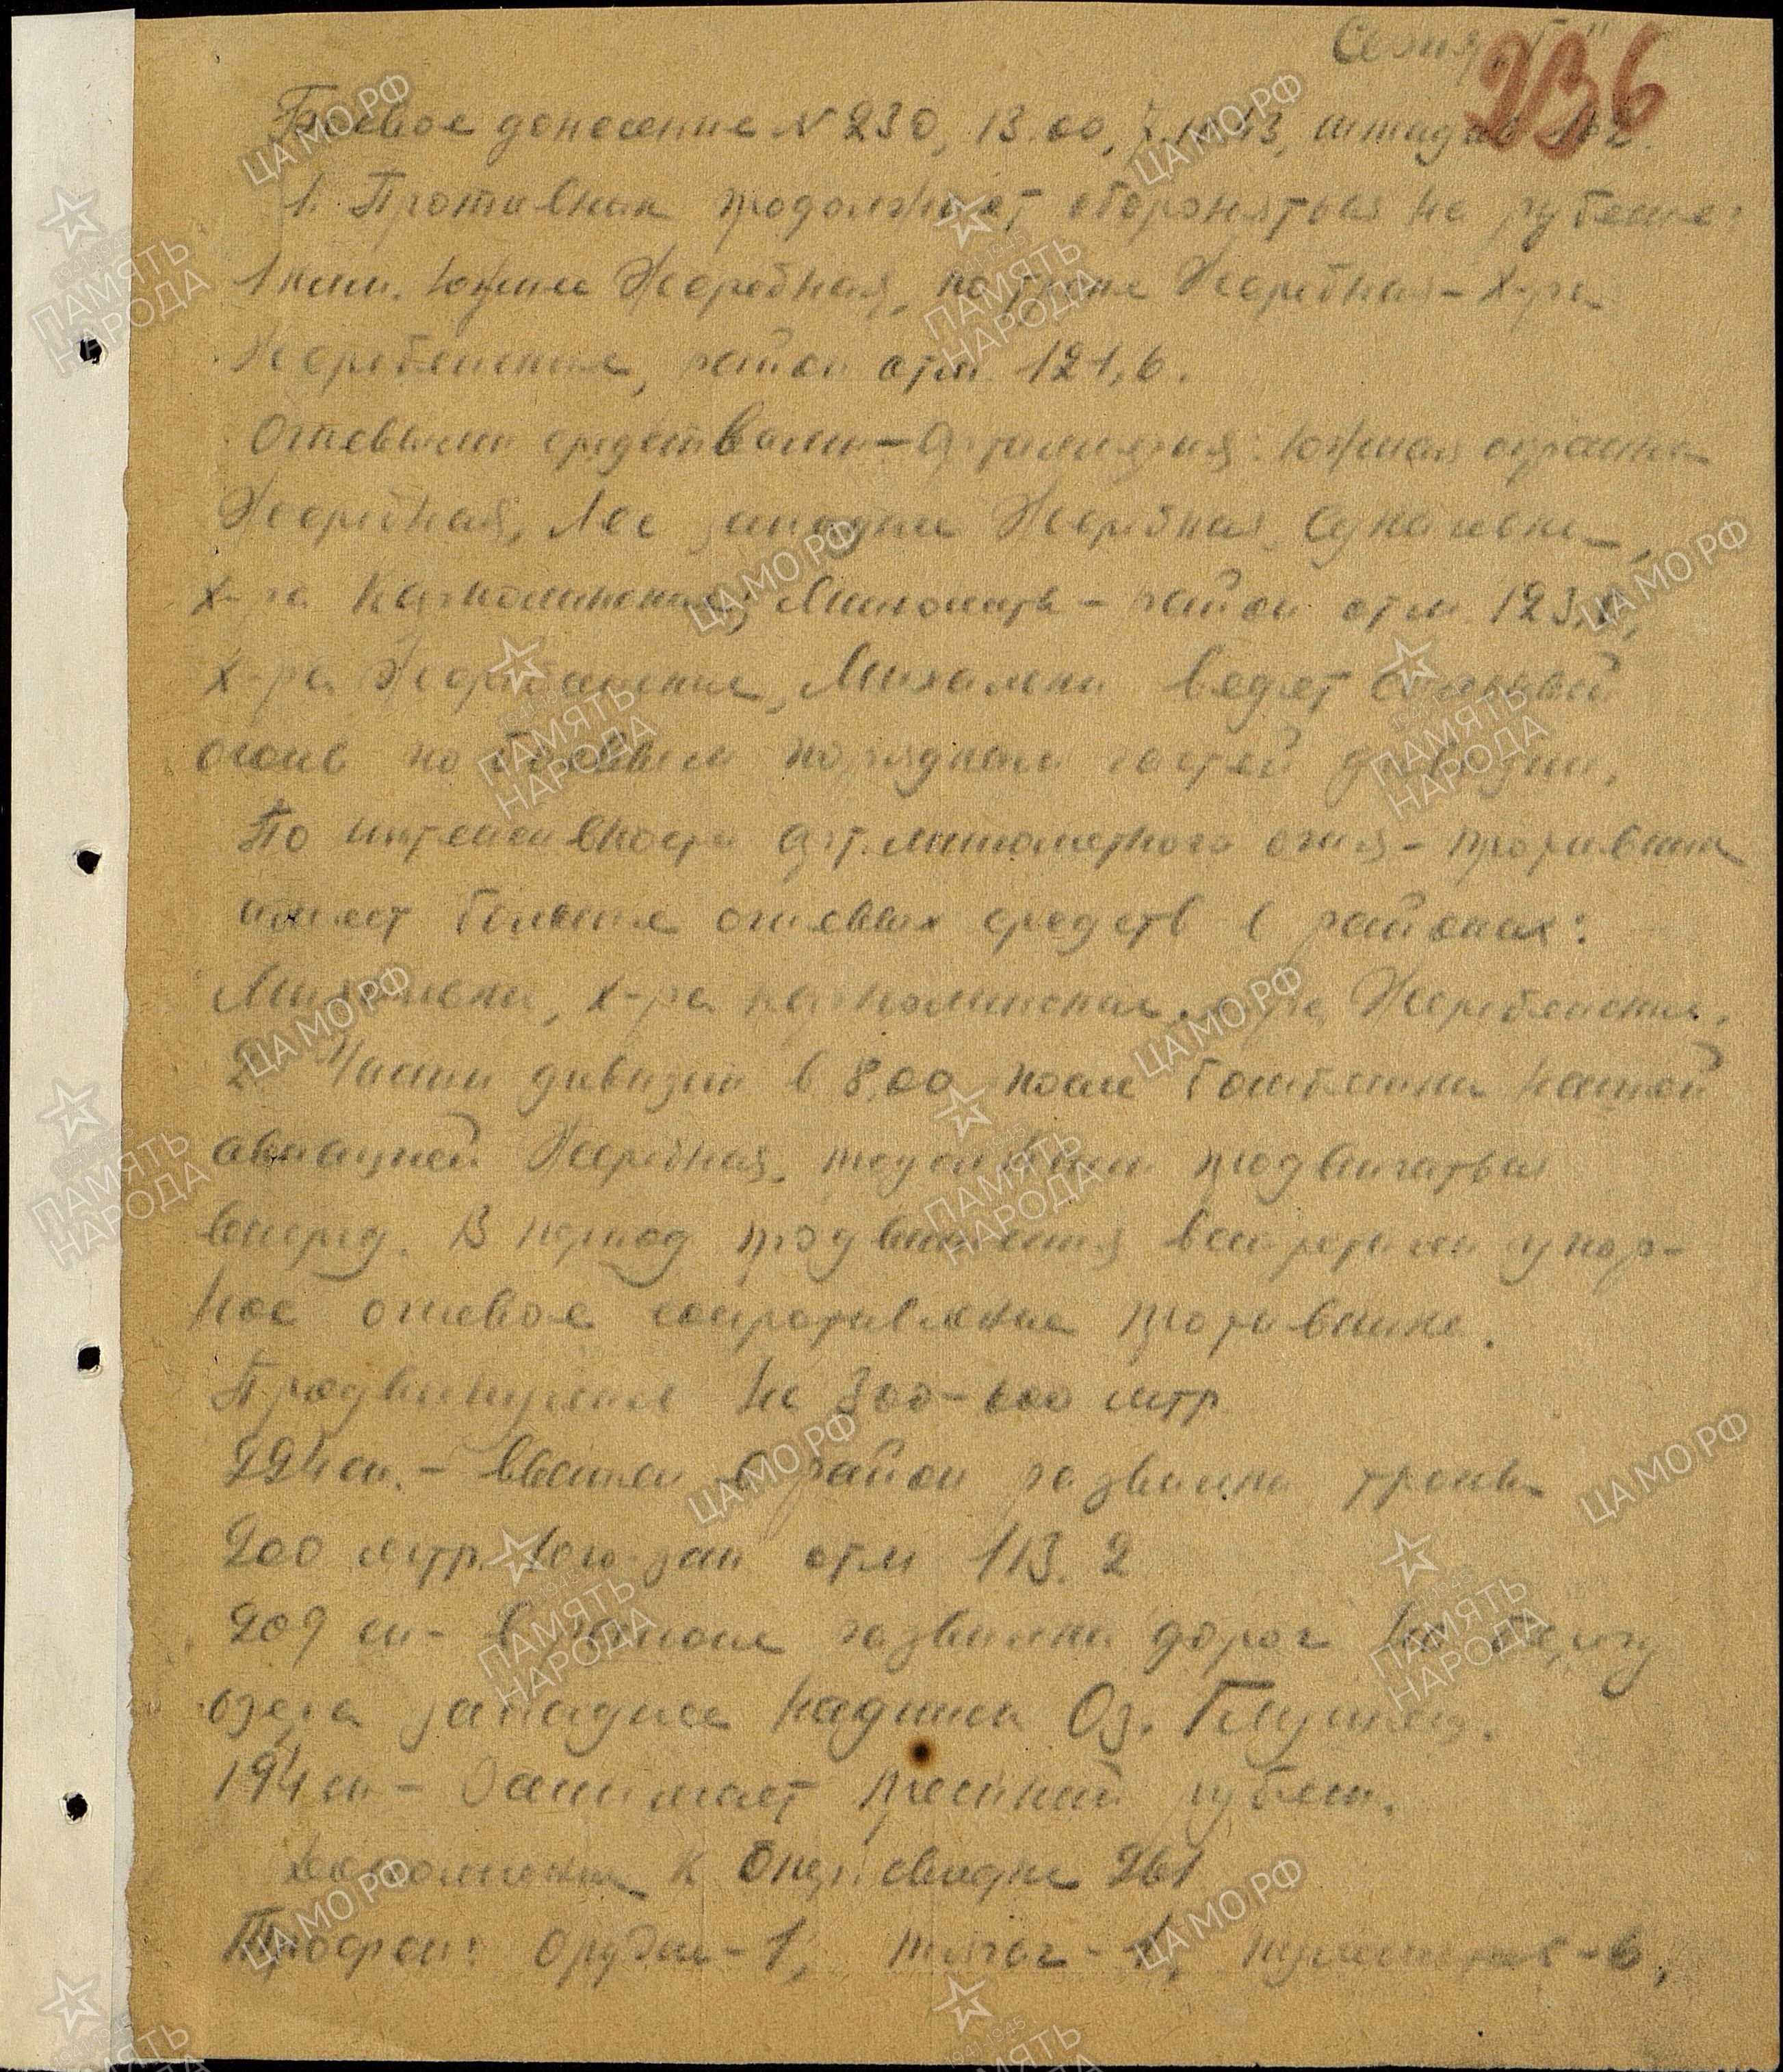 Серия "Г"
236
Боевое донесение N 230, 13.00, 7.11.43, штадив 102.
1. Противник продолжает обороняться на рубеже:
1 клм. южнее Жеребная, по тропе Жеребная – х-ра
Жеребянские, район отм. 121,6.
Огневыми средствами – Артиллерия: южная окраина
Жеребная, лес западнее Жеребная,
х-ра Миномёты – район отм. 123,
х-ра Жеребянские, Михалени ведет сильный
огонь по боевым порядкам частей дивизии.
По интенсивности арт. миномётного огня – противник
имеет больше огневых средств в районах:
Михалени, х-ра х-ра Жеребянские.
2. Части дивизии в 8.00 после бомбежки нашей
авиацией Жеребная, продолжали продвигаться
вперед. В период продвижения встретили упор-
ное огневое сопротивление противника.
Продвинулись на 300–600 мтр
224 сп. – вышел в район развилки тропы
200 мтр. юго-зап отм 113.2
209 сп – в районе развилки дорог на берегу
озера западнее надписи Оз. Глушец.
194 сп – Занимает прежний рубеж.
Дополнение к Опер. сводке 261
Трофеи: Орудие – 1, тягач – 1, пулеметов – 6,
ЦА МО РФ
ПАМЯТЬ НАРОДА
1941-1945